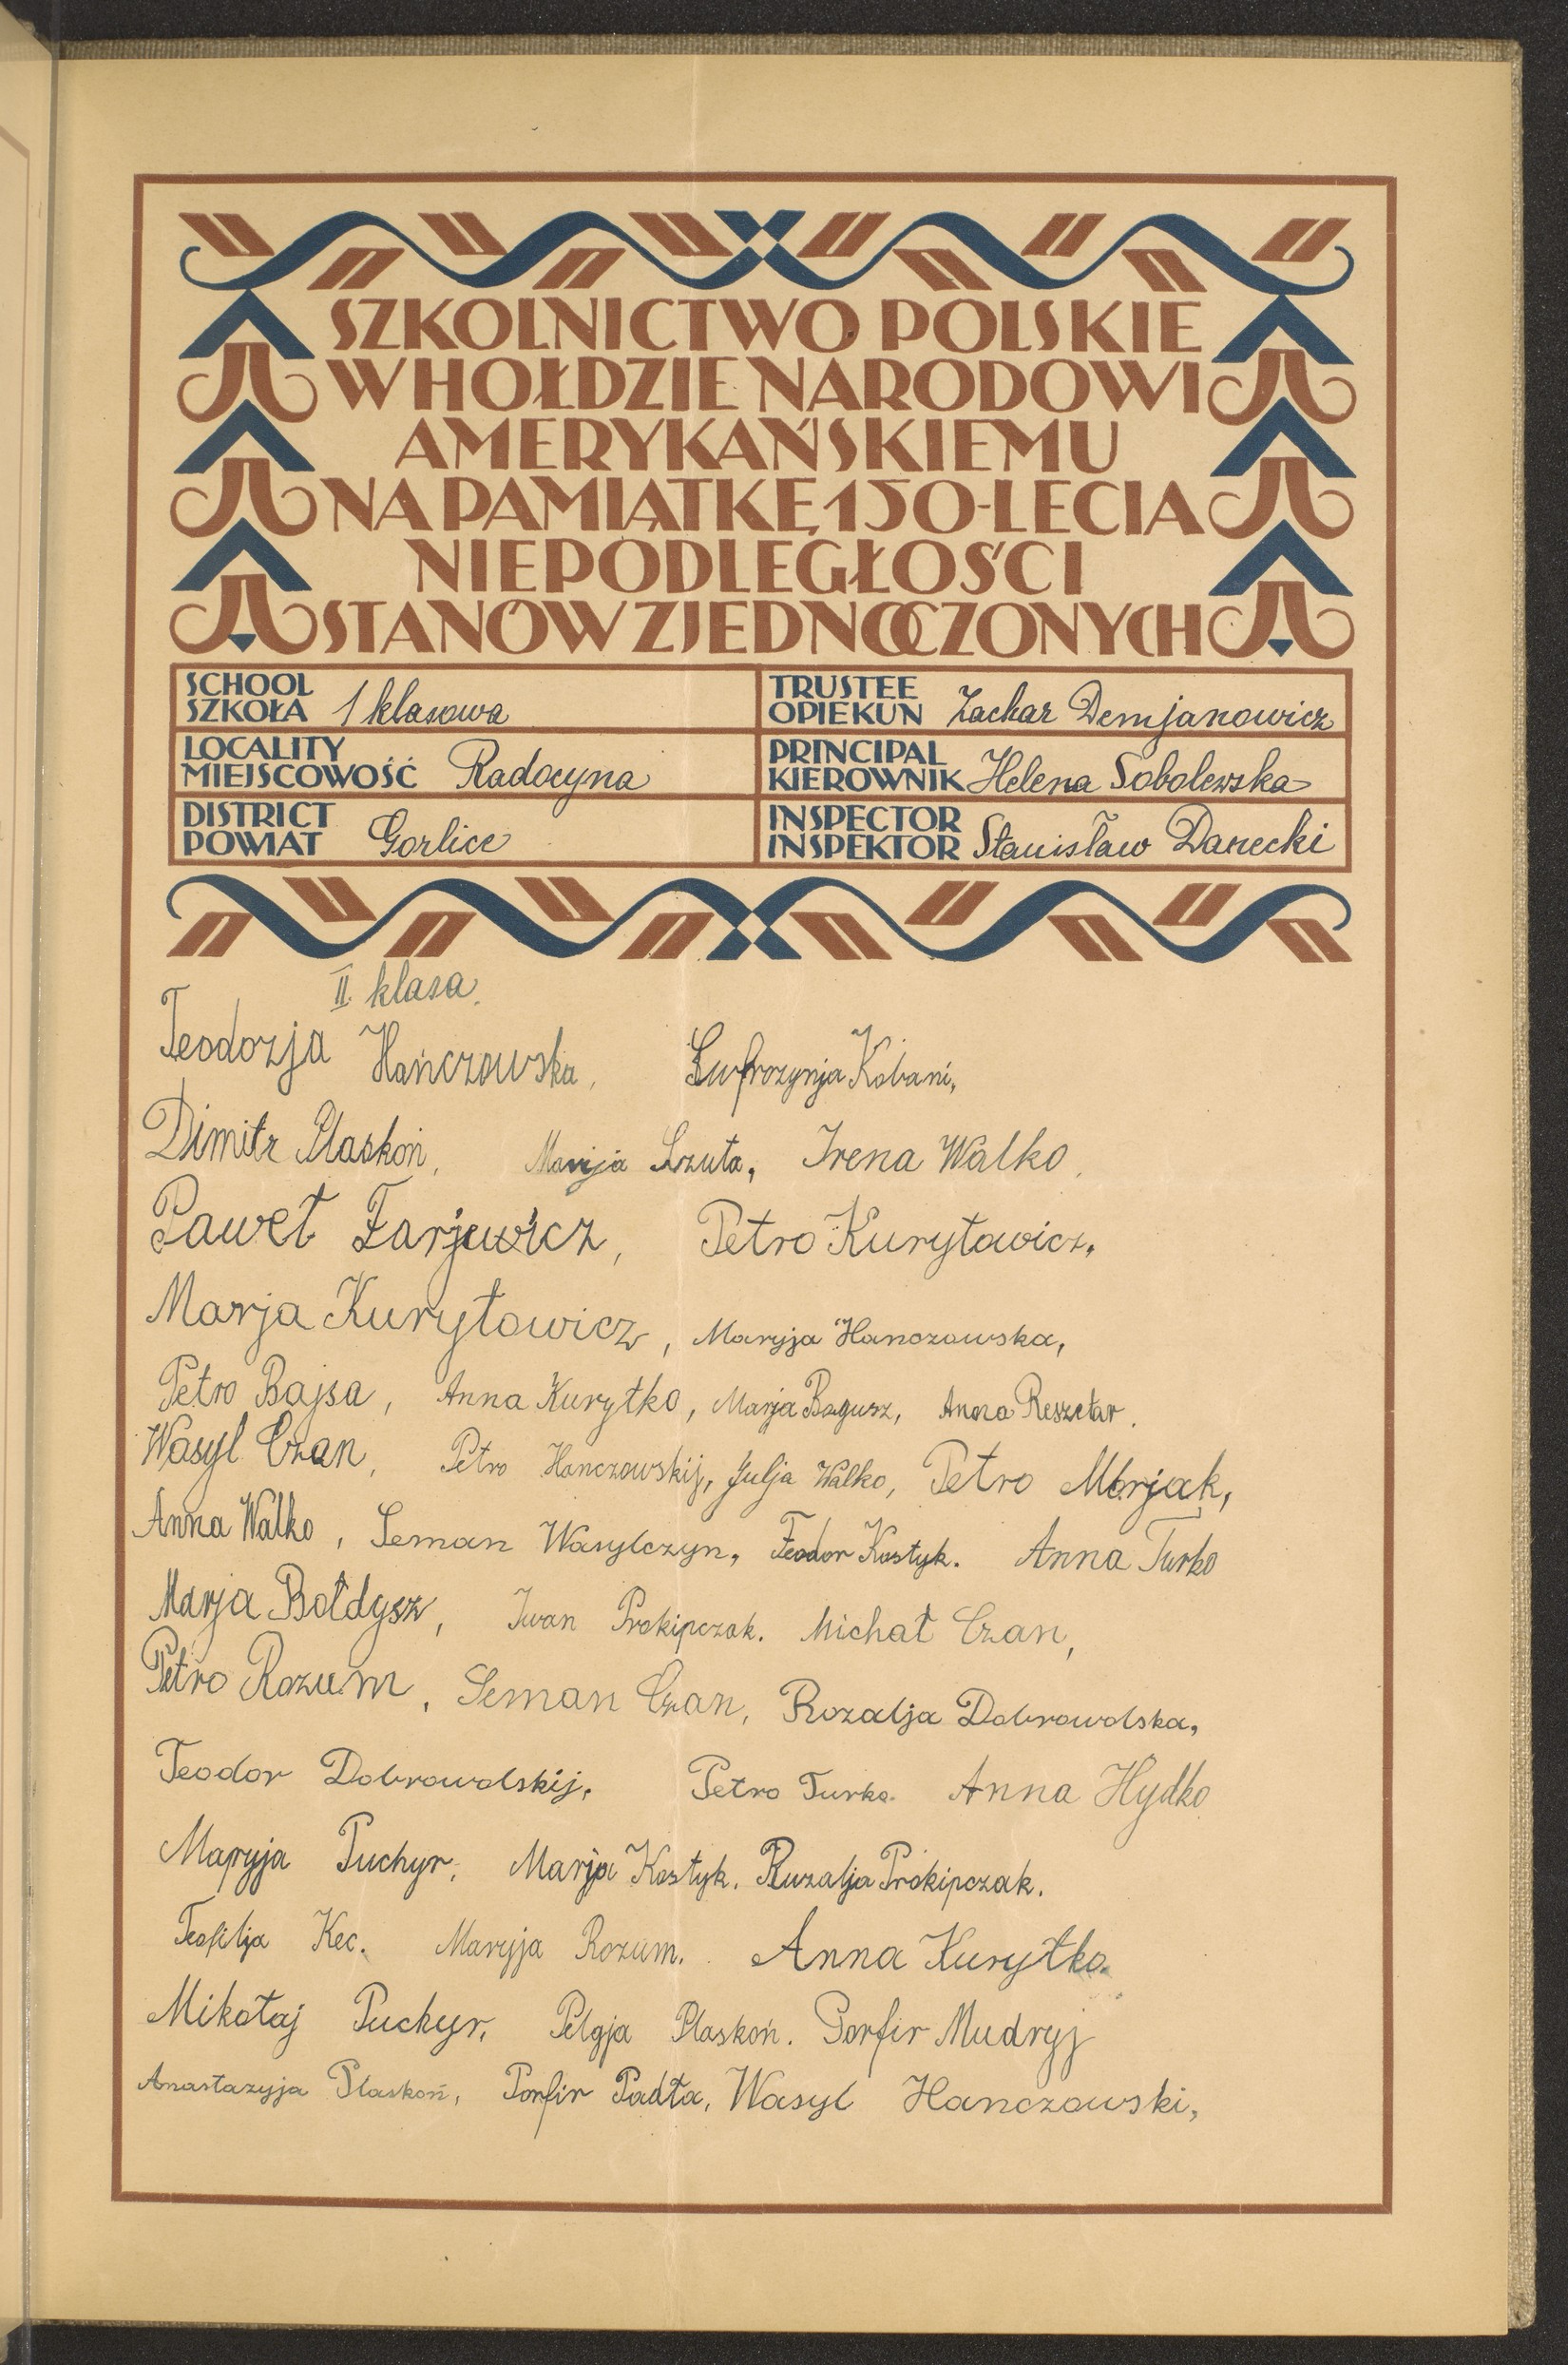 SZKOLNICTWO POLSKIE
W HOŁDZIE NARODOWI
AMERYKAŃSKIEMU
NA PAMIĄTKĘ 150-LECIA
NIEPODLEGŁOŚCI
STANÓW ZJEDNOCZONYCH
SCHOOL
SZKOŁA 1 klasowa
TRUSTEE
OPIEKUN Zachar Demjanowicz
LOCALITY
MIEJSCOWOŚĆ Radocyna
PRINCIPAL
KIEROWNIK Helena Sobolewska
DISTRICT
POWIAT Gorlice
INSPECTOR
INSPEKTOR Stanisław Darecki
II. klasa.
Teodozja Hańczowska, Eufrozynja Kobani,
Dimitr Płaskoń, Marija Szuta, Irena Walko.
Paweł Zarjewicz, Petro Kuryłowicz,
Marja Kuryłowicz, Maryja Hanczowska,
Petro Bajsa, Anna Kuryłko, Marja Bogusz, Anna Reszetar.
Wasyl Czan, Petro Hanczowskij, Julja Walko, Petro Morjak,
Anna Walko, Seman Wasylczyn, Teodor Kostyk. Anna Turko
Marja Bołdysz, Iwan Prokipczak. Michał Czan,
Petro Rozum, Seman Czan, Rozalja Dobrowolska,
Teodor Dobrowolskij, Petro Turko. Anna Hydko
Maryja Puchyr, Marja Kostyk. Ruzalja Prokipczak.
Teofilja Kec. Maryja Rozum. Anna Kuryłko.
Mikołaj Puchyr, Pelgja Płaskoń. Porfir Mudryj
Anastazyja Płaskoń, Porfir Padła, Wasyl Hanczowski,